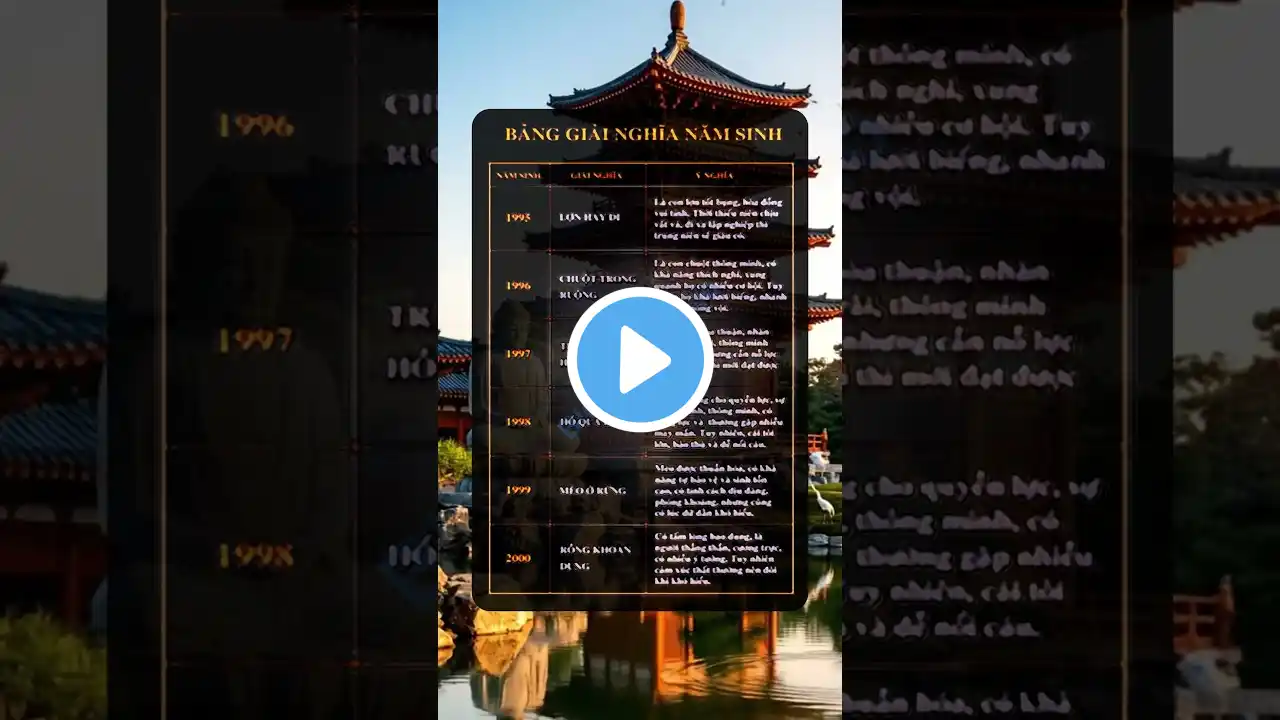 BẢNG GIẢI NGHĨA NĂM SINH
NĂM SINH GIẢI NGHĨA Ý NGHĨA
1995 LỢN HAY ĐI
Là con lợn tốt bụng, hòa đồng
vui tính. Thời thiếu niên chịu
vất vả, đi xa lập nghiệp thì
trung niên sẽ giàu có.
1996 CHUỘT TRONG
RUỘNG
Là con chuột thông minh, có
khả năng thích nghi, xung
quanh họ có nhiều cơ hội. Tuy
khá lười biếng, nhanh
vội.
1997
thuận, nhân
thông minh
nhưng cần nỗ lực
thì mới đạt được
1998 HỔ QUA
cho quyền lực, sự
thông minh, có
và thường gặp nhiều
may mắn. Tuy nhiên, cái tôi
lớn, bảo thủ và dễ nổi cáu.
1999 MÈO Ở RỪNG
Mèo được thuần hóa, có khả
năng tự bảo vệ và sinh tồn
cao, có tính cách dịu dàng,
phóng khoáng, nhưng cũng
có lúc dữ dằn khó hiểu.
2000 RỒNG KHOAN
DUNG
Có tấm lòng bao dung, là
người thẳng thắn, cương trực,
có nhiều ý tưởng. Tuy nhiên
cảm xúc thất thường nên đôi
khi khó hiểu.